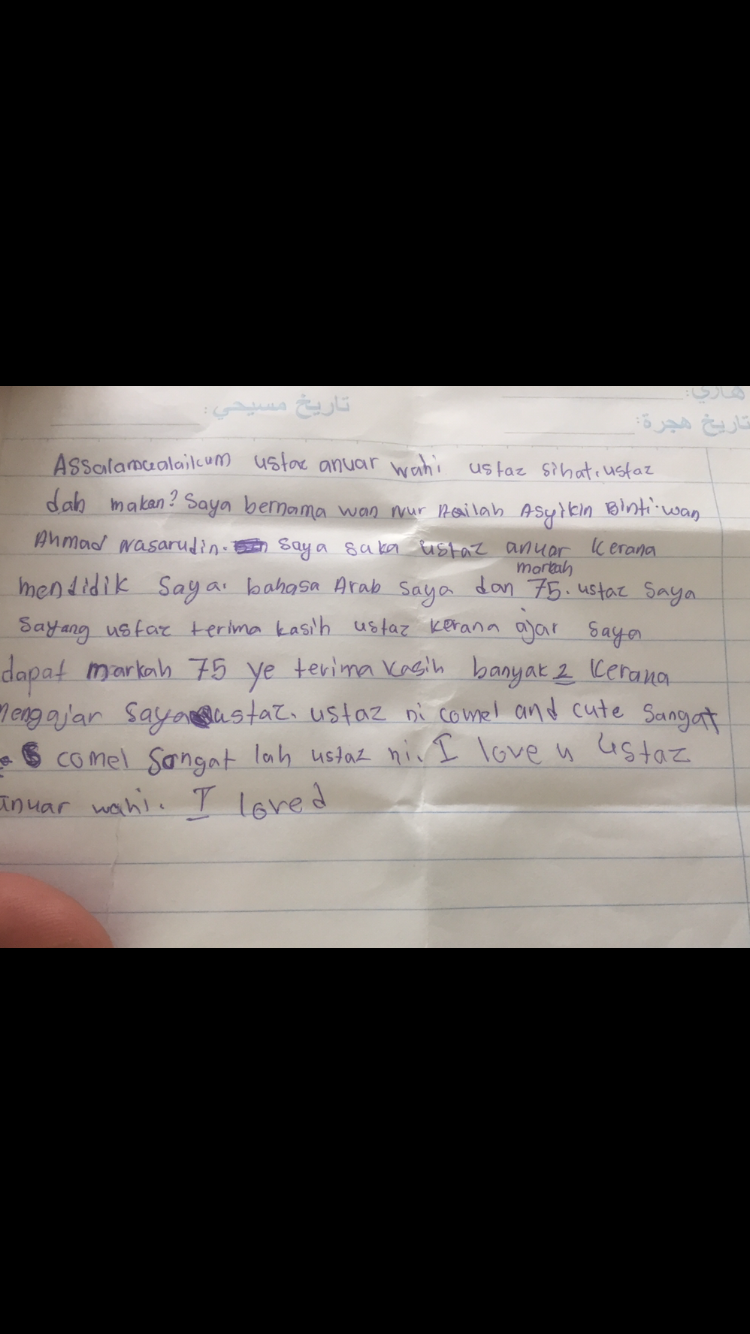 تاريخ مسيحي:
هاري:
تاريخ هجرة:
Assalamualaikum ustaz anuar wahi ustaz sihat. ustaz
dah makan? Saya bernama wan nur Asyikin Binti wan
Ahmad nasarudin. saya suka ustaz anuar kerana
markah
mendidik saya. bahasa Arab saya dan 75. ustaz saya
sayang ustaz terima kasih ustaz kerana ajar saya
dapat markah 75 ye terima kasih banyak 2 kerana
mengajar saya ustaz. ustaz ni comel and cute sangat
comel sangat lah ustaz ni. I love u ustaz
anuar wahi. I loved